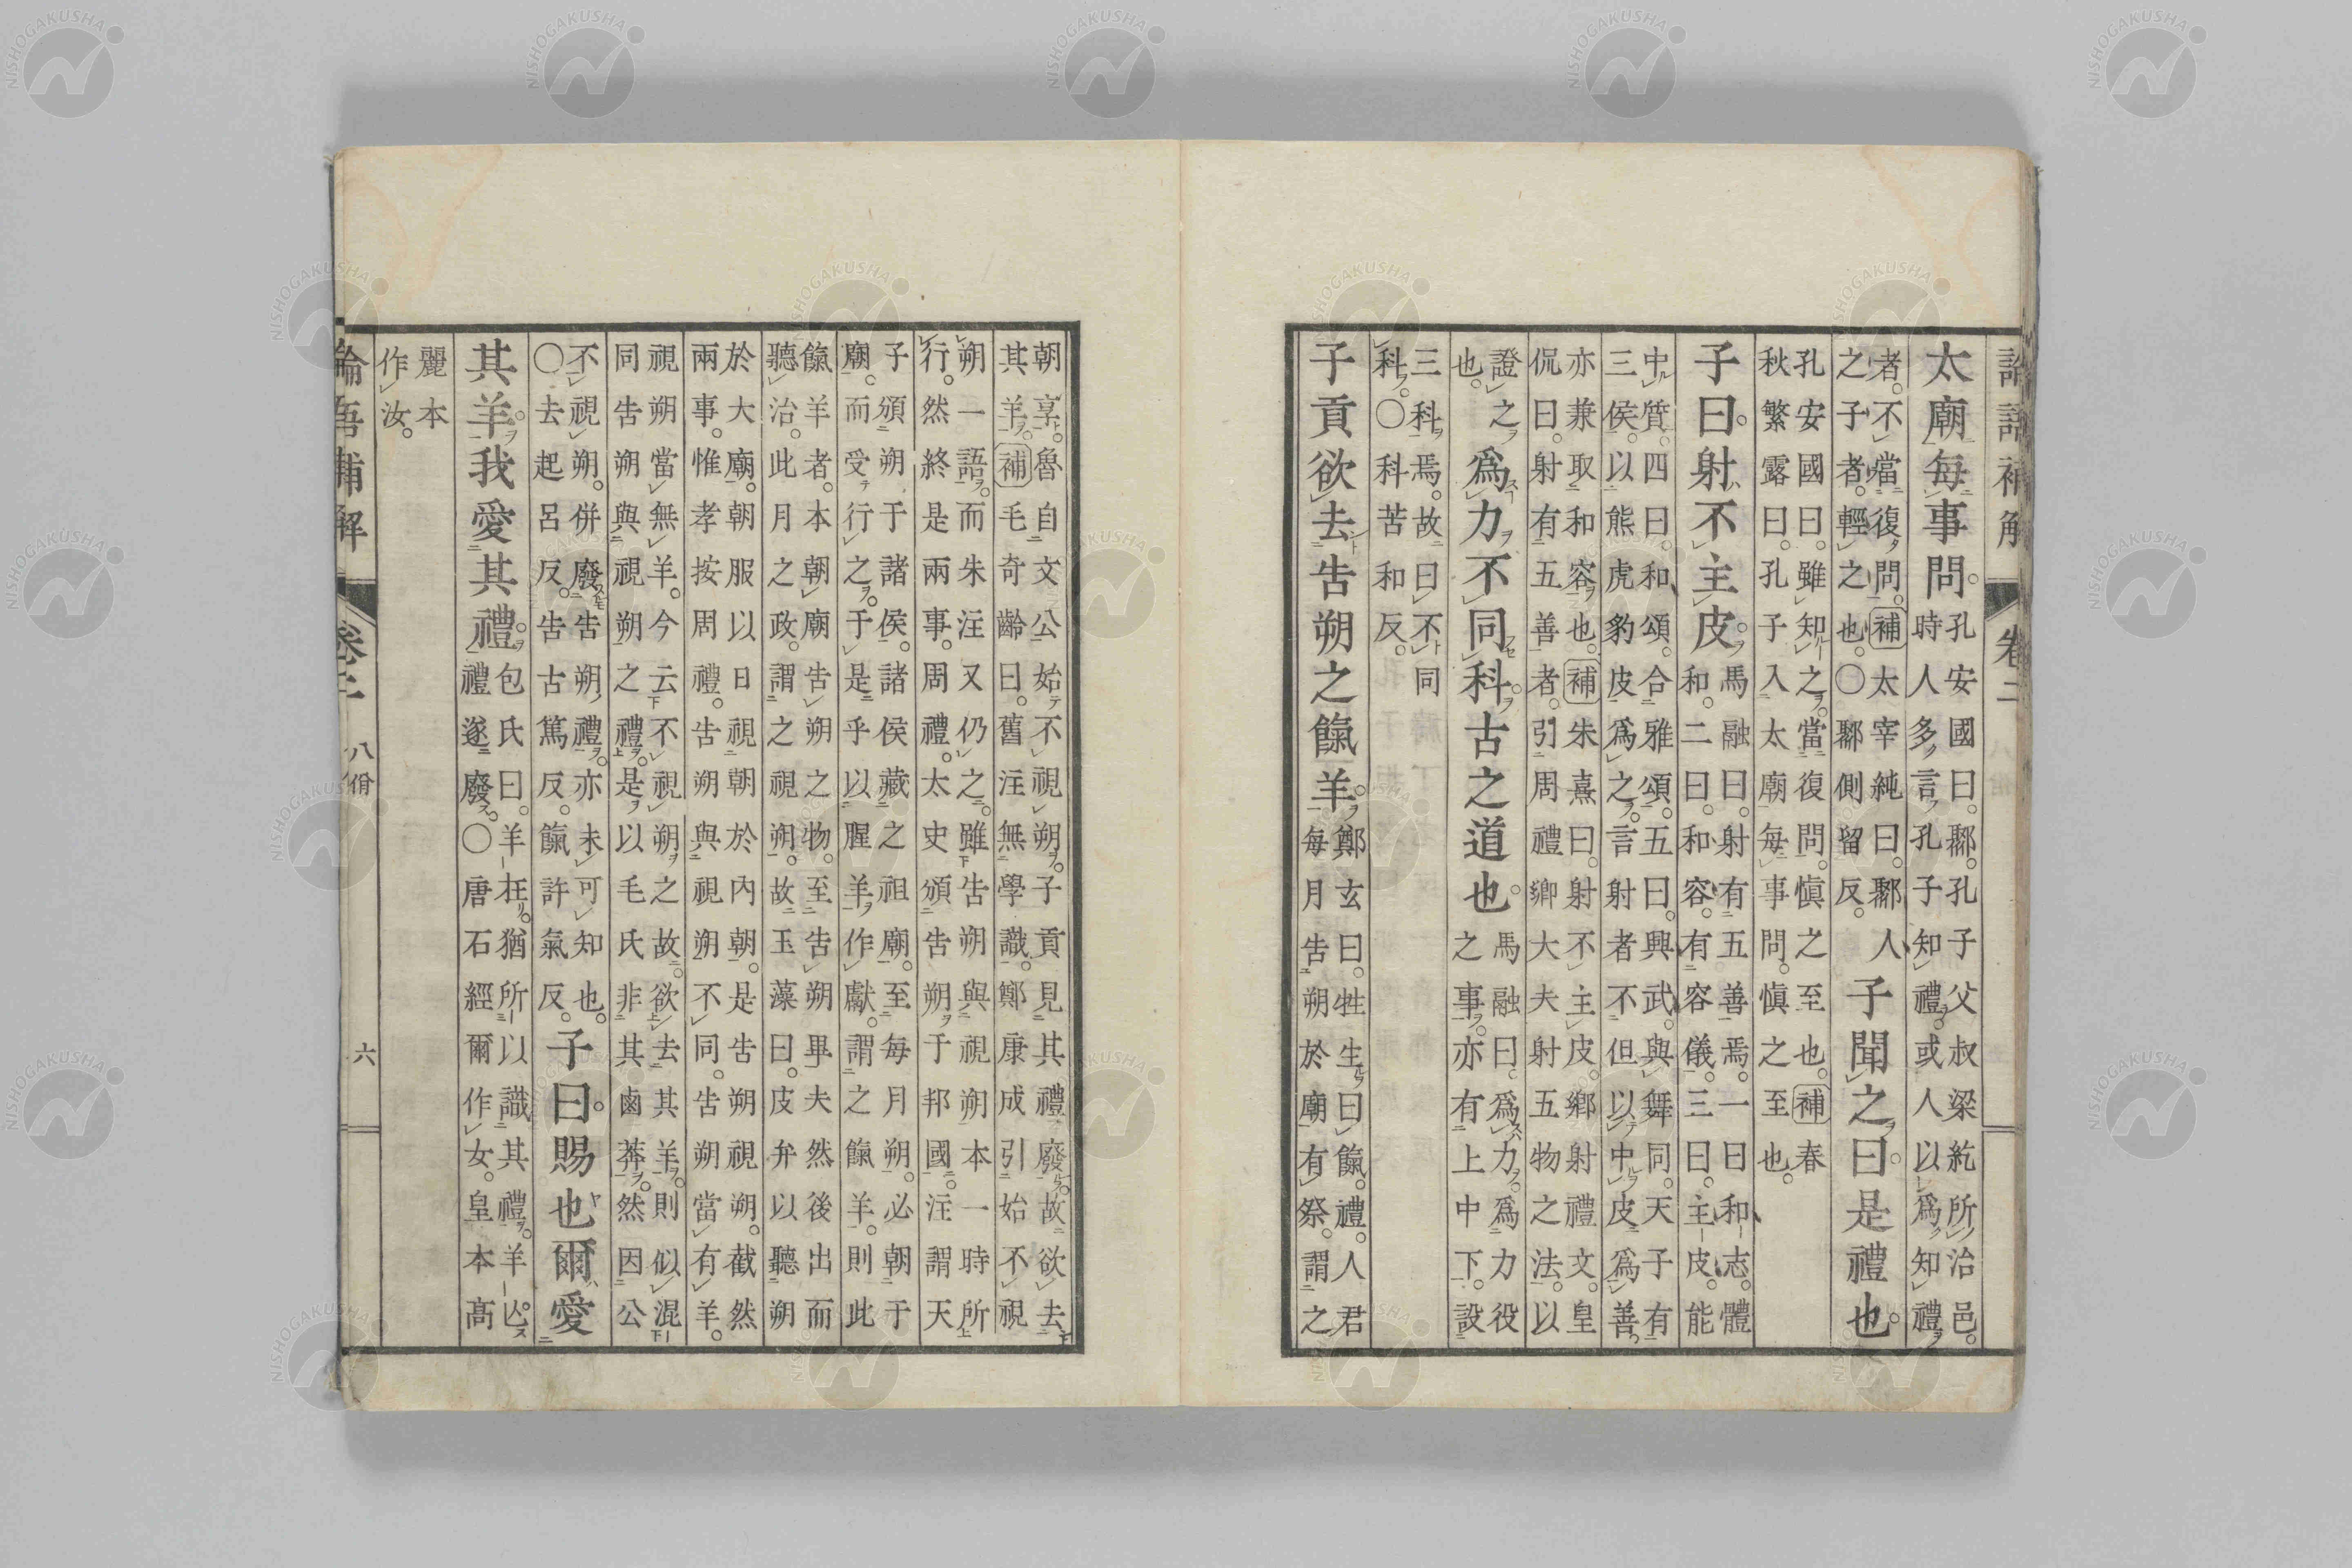 論語補解 卷二
太廟每事問。
孔安國曰。鄹。孔子父叔梁紇所治邑。
時人多言孔子知禮。或人以爲知禮
者。不當復問。補太宰純曰。鄹人
之子者。輕之也。〇鄹側留反。
子聞之曰。是禮也。
孔安國曰。雖知之。當復問。愼之至也。補春
秋繁露曰。孔子入太廟每事問。愼之至也。
子曰。射不主皮。
馬融曰。射有五善焉。一曰和志。體
和。二曰。和容。有容儀。三曰。主皮。能
中質。四曰。和頌。合雅頌。五曰。興武。與舞同。天子有
三侯。以熊虎豹皮爲之。言射者不但以中皮爲善
亦兼取和容也。補朱熹曰。射不主皮。鄉射禮文。皇
侃曰。射有五善者。引周禮卿大夫射五物之法。以
證之。
也。
爲力不同科。古之道也。
馬融曰。爲力。爲力役
之事。亦有上中下。設
三科焉。故曰不同
科。〇科苦和反。
子貢欲去告朔之餼羊。
鄭玄曰。牲生曰餼。禮。人君
每月告朔於廟有祭。謂之
朝享。魯自文公始不視朔。子貢見其禮廢。故欲去
其羊。補毛奇齡曰。舊注無學識。鄭康成引始不視
朔一語。而朱注又仍之。雖告朔與視朔本一時所
行。然終是兩事。周禮。太史頒告朔于邦國。注謂天
子頒朔于諸侯。諸侯藏之祖廟。至每月朔。必朝于
廟。而受行之。于是乎以腥羊作獻。謂之餼羊。則此
餼羊者。本朝廟告朔之物。至告朔畢夫然後出而
聽治。此月之政。謂之視朔。故玉藻曰。皮弁以聽朔
於大廟。朝服以日視朝於內朝。是告朔視朔。截然
兩事。惟孝按周禮。告朔與視朔不同。告朔當有羊。
視朔當無羊。今云不視朔之故。欲去其羊。則似混
同告朔與視朔之禮。是以毛氏非其鹵莽。然因公
不視朔。併廢告朔禮。亦未可知也。
〇去起呂反。告古篤反。餼許氣反。
子曰。賜也爾愛
其羊。我愛其禮。
包氏曰。羊在。猶所以識其禮。羊亡。
禮遂廢。〇唐石經爾作女。皇本高
麗本
作汝。
論語補解 卷二 八佾 六
NISHOGAKUSHA